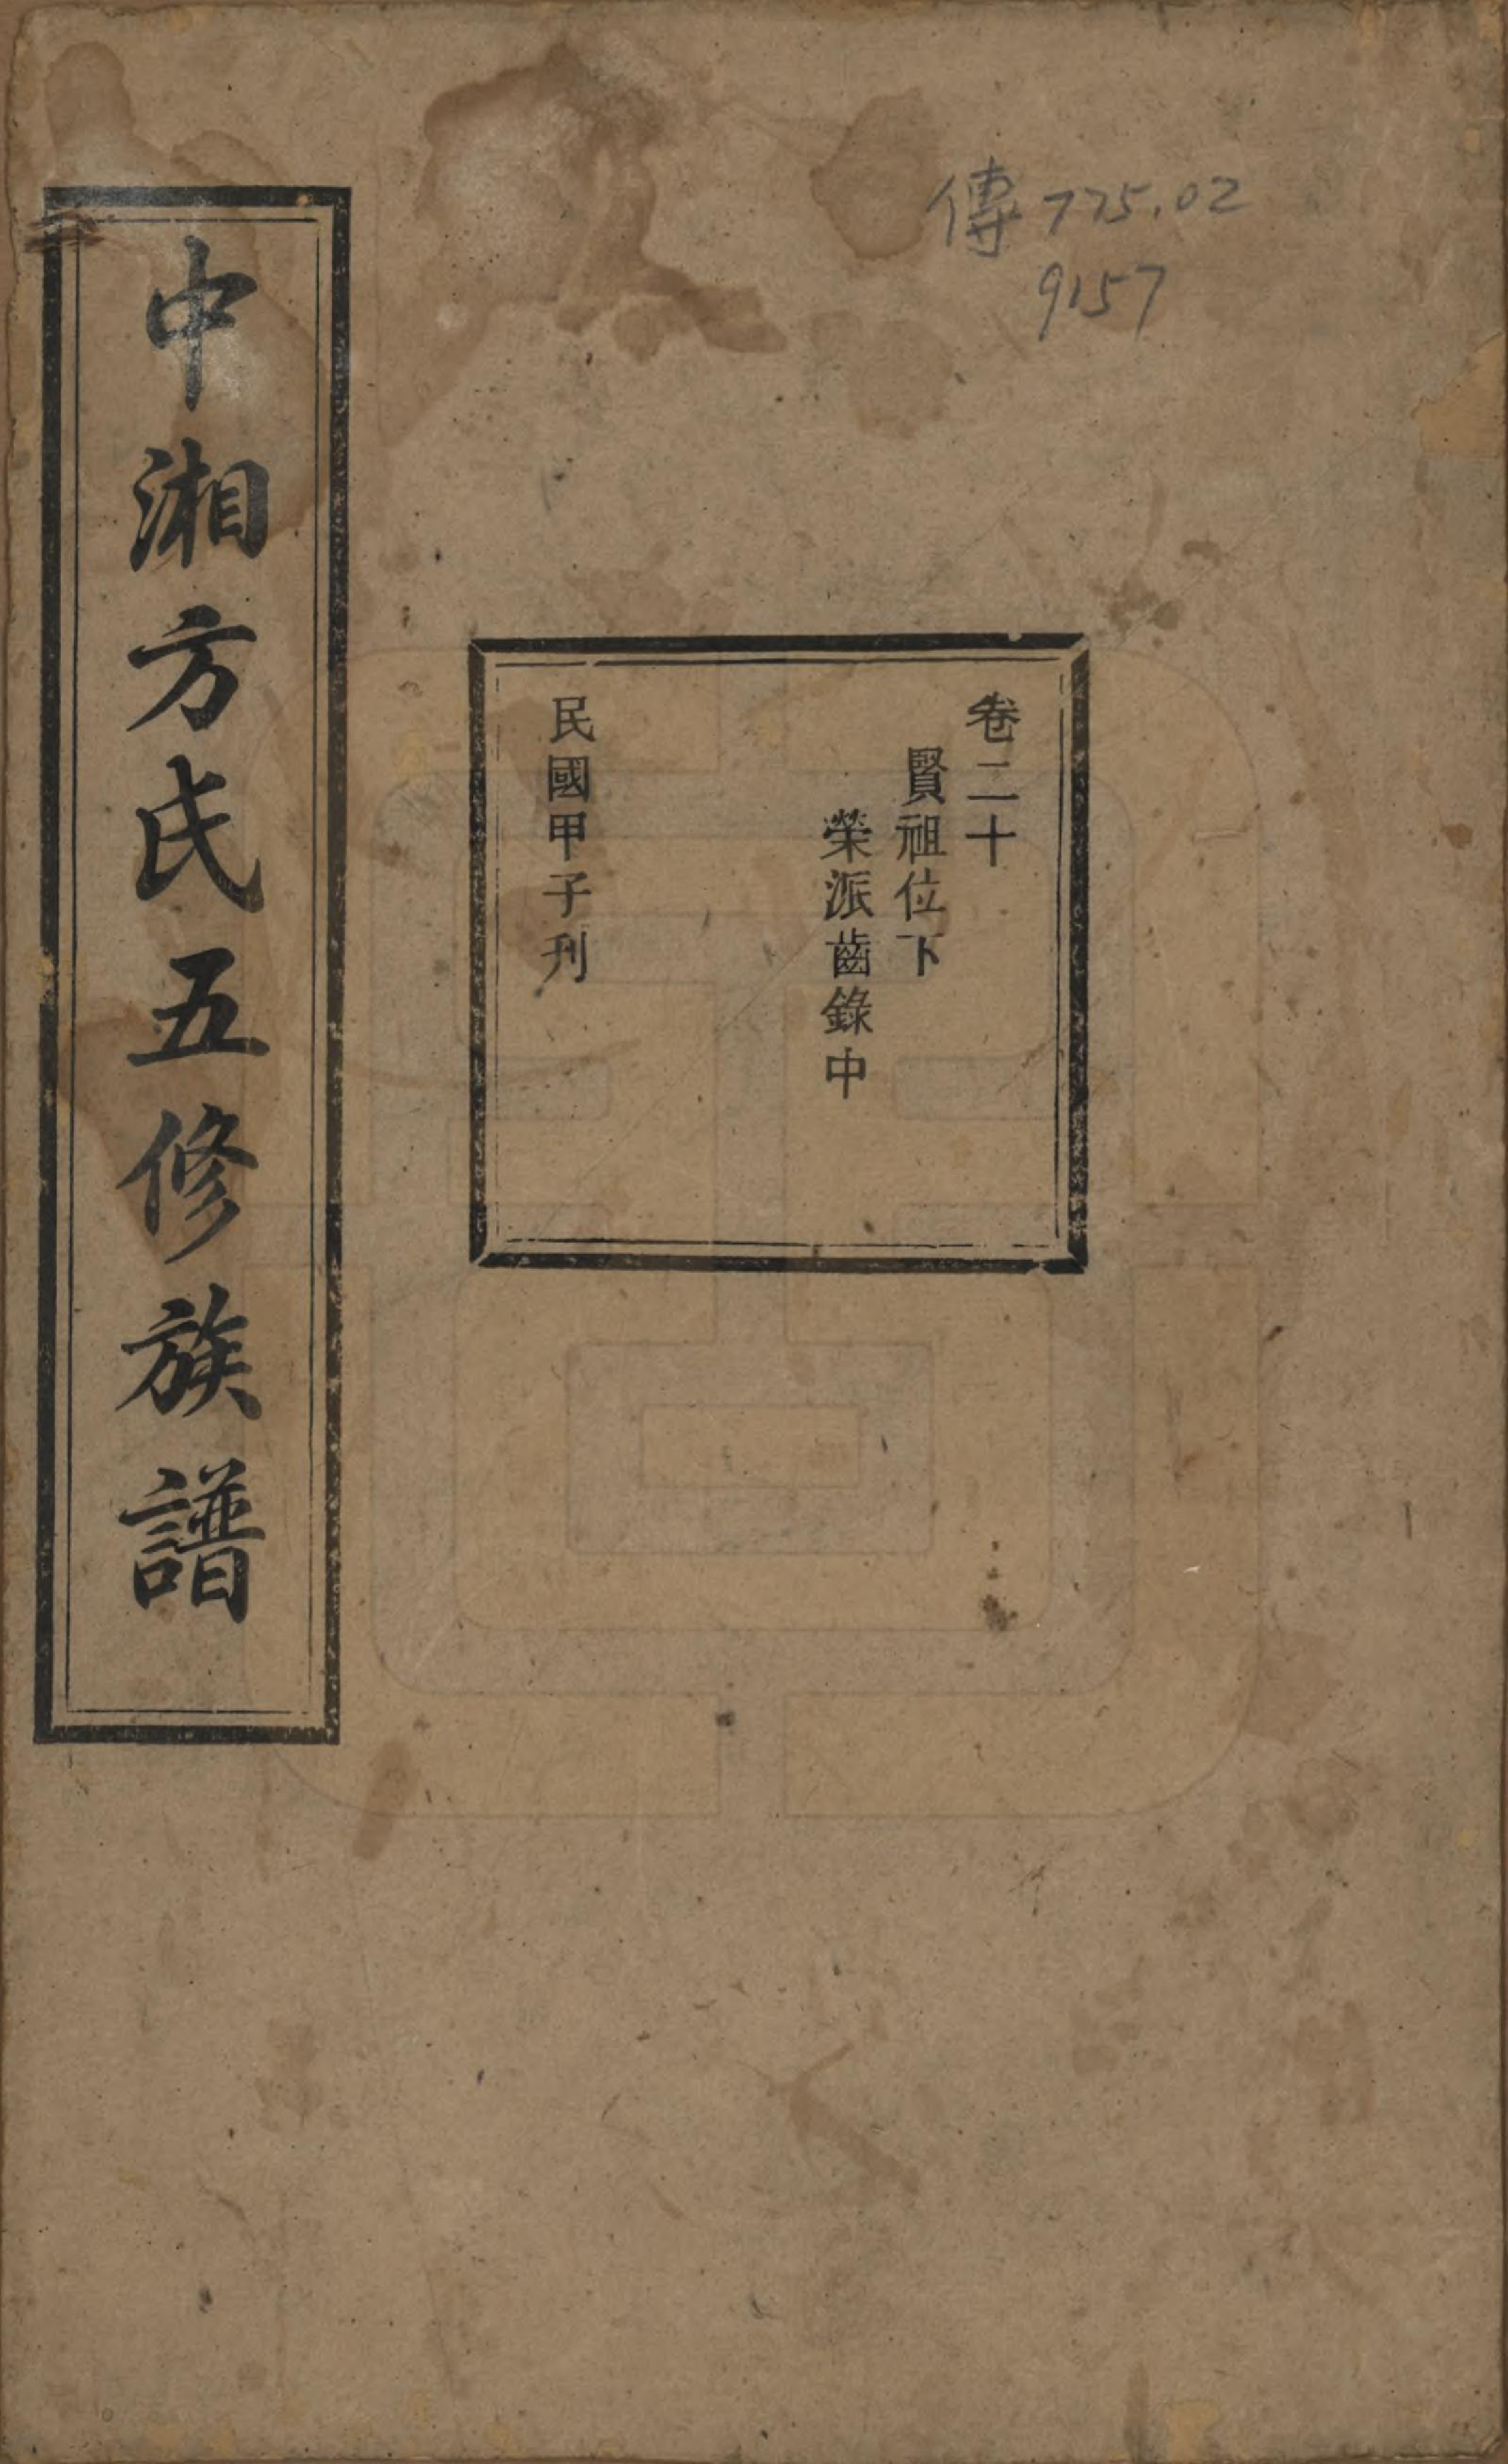 傳 775.02
9157
卷二十
賢祖位下
榮派齒錄中
民國甲子刊
中湘方氏五修族譜